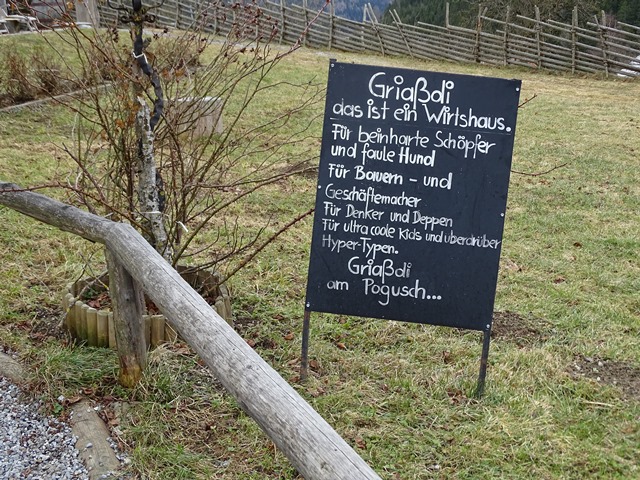 Griaßdi
das ist ein Wirtshaus.
Für beinharte Schöpfer
und faule Hund
Für Bauern - und
Geschäftemacher
Für Denker und Deppen
Für ultra coole Kids und überdrüber
Hyper-Typen.
Griaßdi
am Pogusch...